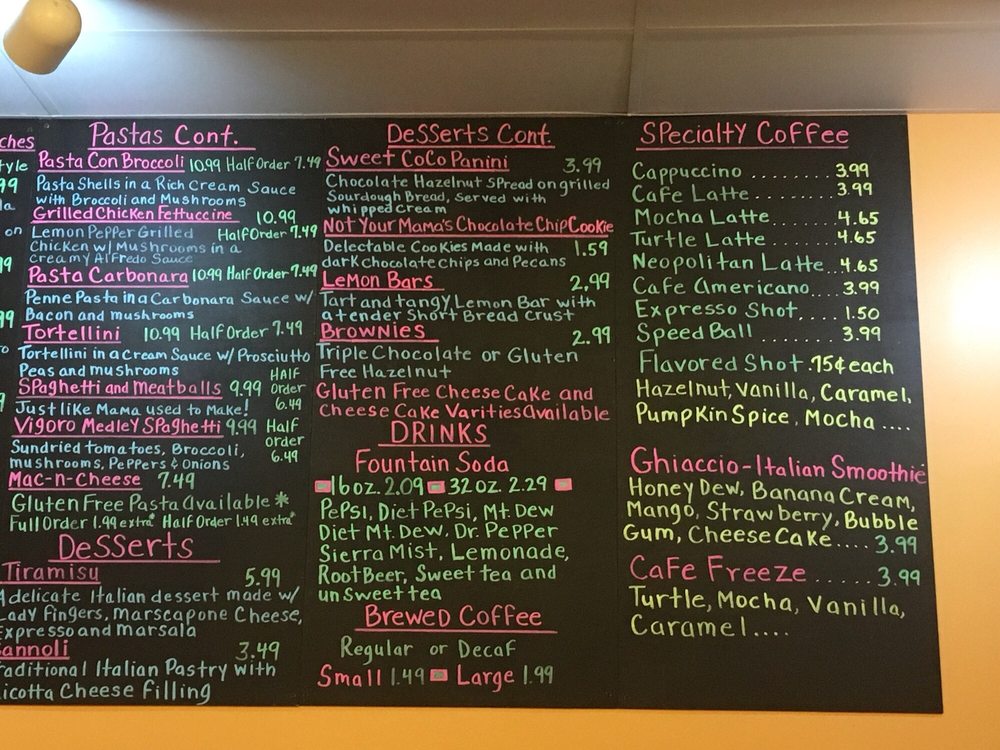 ches
tyle
99
la
on
99
99
Pastas Cont.
Pasta Con Broccoli 10.99 Half Order 7.49
Pasta Shells in a Rich Cream Sauce
with Broccoli and Mushrooms
Grilled Chicken Fettuccine 10.99
Lemon Pepper Grilled Half Order 7.49
Chicken w/ Mushrooms in a
creamy Alfredo Sauce
Pasta Carbonara 10.99 Half Order 7.49
Penne Pasta in a Carbonara Sauce w/
Bacon and mushrooms
Tortellini 10.99 Half Order 7.49
Tortellini in a cream Sauce w/ Prosciutto
Peas and mushrooms
Spaghetti and Meatballs 9.99 Half Order 6.49
Just like Mama used to Make!
Vigoro Medley Spaghetti 9.99 Half order 6.49
Sundried tomatoes, Broccoli,
mushrooms, Peppers & Onions
Mac-n-Cheese 7.49
Gluten Free Pasta available *
Full Order 1.99 extra* Half Order 1.49 extra*
Desserts
Tiramisu 5.99
A delicate Italian dessert made w/
Lady fingers, Marscapone Cheese,
Expresso and marsala
Cannoli 3.49
raditional Italian Pastry with
icotta Cheese filling
Desserts Cont.
Sweet CoCo Panini 3.99
Chocolate Hazelnut Spread on grilled
Sourdough Bread, Served with
whipped Cream
Not Your Mama's Chocolate Chip Cookie
Delectable Cookies Made with 1.59
dark chocolate chips and Pecans
Lemon Bars 2.99
Tart and tangy Lemon Bar with
a tender Short Bread Crust
Brownies 2.99
Triple Chocolate or Gluten
Free Hazelnut
Gluten Free Cheese Cake and
Cheese Cake Varities available
DRINKS
Fountain Soda
16 oz. 2.09 32 oz. 2.29
Pepsi, Diet Pepsi, Mt. Dew
Diet Mt. Dew, Dr. Pepper
Sierra Mist, Lemonade,
Root Beer, Sweet tea and
unsweet tea
Brewed Coffee
Regular or Decaf
Small 1.49 Large 1.99
Specialty Coffee
Cappuccino ........ 3.99
Cafe Latte ........ 3.99
Mocha Latte ....... 4.65
Turtle Latte ...... 4.65
Neopolitan Latte.. 4.65
Cafe Americano.... 3.99
Expresso Shot..... 1.50
Speed Ball ....... 3.99
Flavored Shot .75¢ each
Hazelnut, Vanilla, Caramel,
Pumpkin Spice, Mocha ....
Ghiaccio-Italian Smoothie
Honey Dew, Banana Cream,
Mango, Strawberry, Bubble
Gum, Cheese Cake.... 3.99
Cafe Freeze ...... 3.99
Turtle, Mocha, Vanilla,
Caramel....